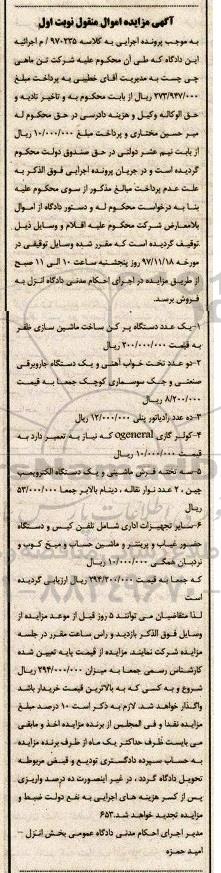 آگهی مزایده اموال منقول نوبت اول
به موجب پرونده اجرایی به کلاسه ۹۷۰۲۳۵ / م اجرائیه
این دادگاه که طی آن محکوم علیه شرکت تن ماهی
چی چست به مدیریت آقای خطیبی به پرداخت مبلغ
۲۷۳/۹۴۷/۰۰۰ ریال از بابت محکوم به و تاخیر تادیه و
حق الوکاله وکیل و هزینه دادرسی در حق محکوم له
میر حسین مختاری و پرداخت مبلغ ۱۰/۰۰۰/۰۰۰ ریال
از بابت نیم عشر دولتی در حق صندوق دولت محکوم
گردیده است و در جریان پرونده اجرایی فوق الذکر به
علت عدم پرداخت مبالغ مذکور از سوی محکوم علیه
بنا به درخواست محکوم له و دستور دادگاه از اموال
بلامعارض شرکت محکوم علیه اقلام و وسایل ذیل
توقیف گردیده است که مقرر شده وسایل توقیفی در
مورخه ۹۷/۱۱/۱۸ روز پنجشنبه ساعت ۱۰ الی ۱۱ صبح
از طریق مزایده در اجرای احکام مدنی دادگاه انزل به
فروش برسد.
۱-یک عدد دستگاه پر کن ساخت ماشین سازی ظفر
به قیمت ۲۰۰/۰۰۰/۰۰۰ ریال
۲-دو عدد تخت خواب آهنی و یک دستگاه جاروبرقی
صنعتی و جک سوسماری کوچک جمعا به قیمت
۸/۲۰۰/۰۰۰ ریال
۳-ده عدد رادیاتور پنلی ۱۲/۰۰۰/۰۰۰ ریال
۴-کولر گازی ogeneral که نیاز به تعمیر دارد به
قیمت ۱۰/۰۰۰/۰۰۰ ریال
۵-سه تخته فرش ماشینی و یک دستگاه الکتروپمپ
چین ، ۲ عدد نوار نقاله ، دینام بالابر جمعا ۵۳/۰۰۰/۰۰۰
ریال
۶-سایر تجهیزات اداری شامل تلفن کیس و دستگاه
حضور غیاب و پرینتر و ماشین حساب و میخ کوب و
نردبان همگی ۱۰/۰۰۰/۰۰۰ ریال
که جمعا به قیمت ۲۹۴/۲۰۰/۰۰۰ ریال ارزیابی گردیده
است
لذا متقاضیان می توانند ۵ روز قبل از موعد مزایده از
وسایل فوق الذکر بازدید و راس ساعت مقرر در جلسه
مزایده شرکت نمایند. مزایده از قیمت پایه تعیین شده
کارشناس رسمی جمعا به میزان ۲۹۴/۰۰۰/۰۰۰ ریال
شروع و به کسی که به بالاترین قیمت خریدار باشد
واگذار خواهد شد. لازم به ذکر است ۱۰ درصد مبلغ
مزایده نقدا و فی المجلس از برنده مزایده اخذ و مابقی
می بایست ظرف حداکثر یک ماه از طرف برنده مزایده
به حساب سپرده دادگستری تودیع و قبض مربوطه
تحویل دادگاه گردد ، در غیر اینصورت ده درصد واریزی
پس از کسر هزینه های اجرایی به نفع دولت ضبط و
مزایده تجدید خواهد شد.۶۵۳
مدیر اجرای احکام مدنی دادگاه عمومی بخش انزل –
امید حمزه